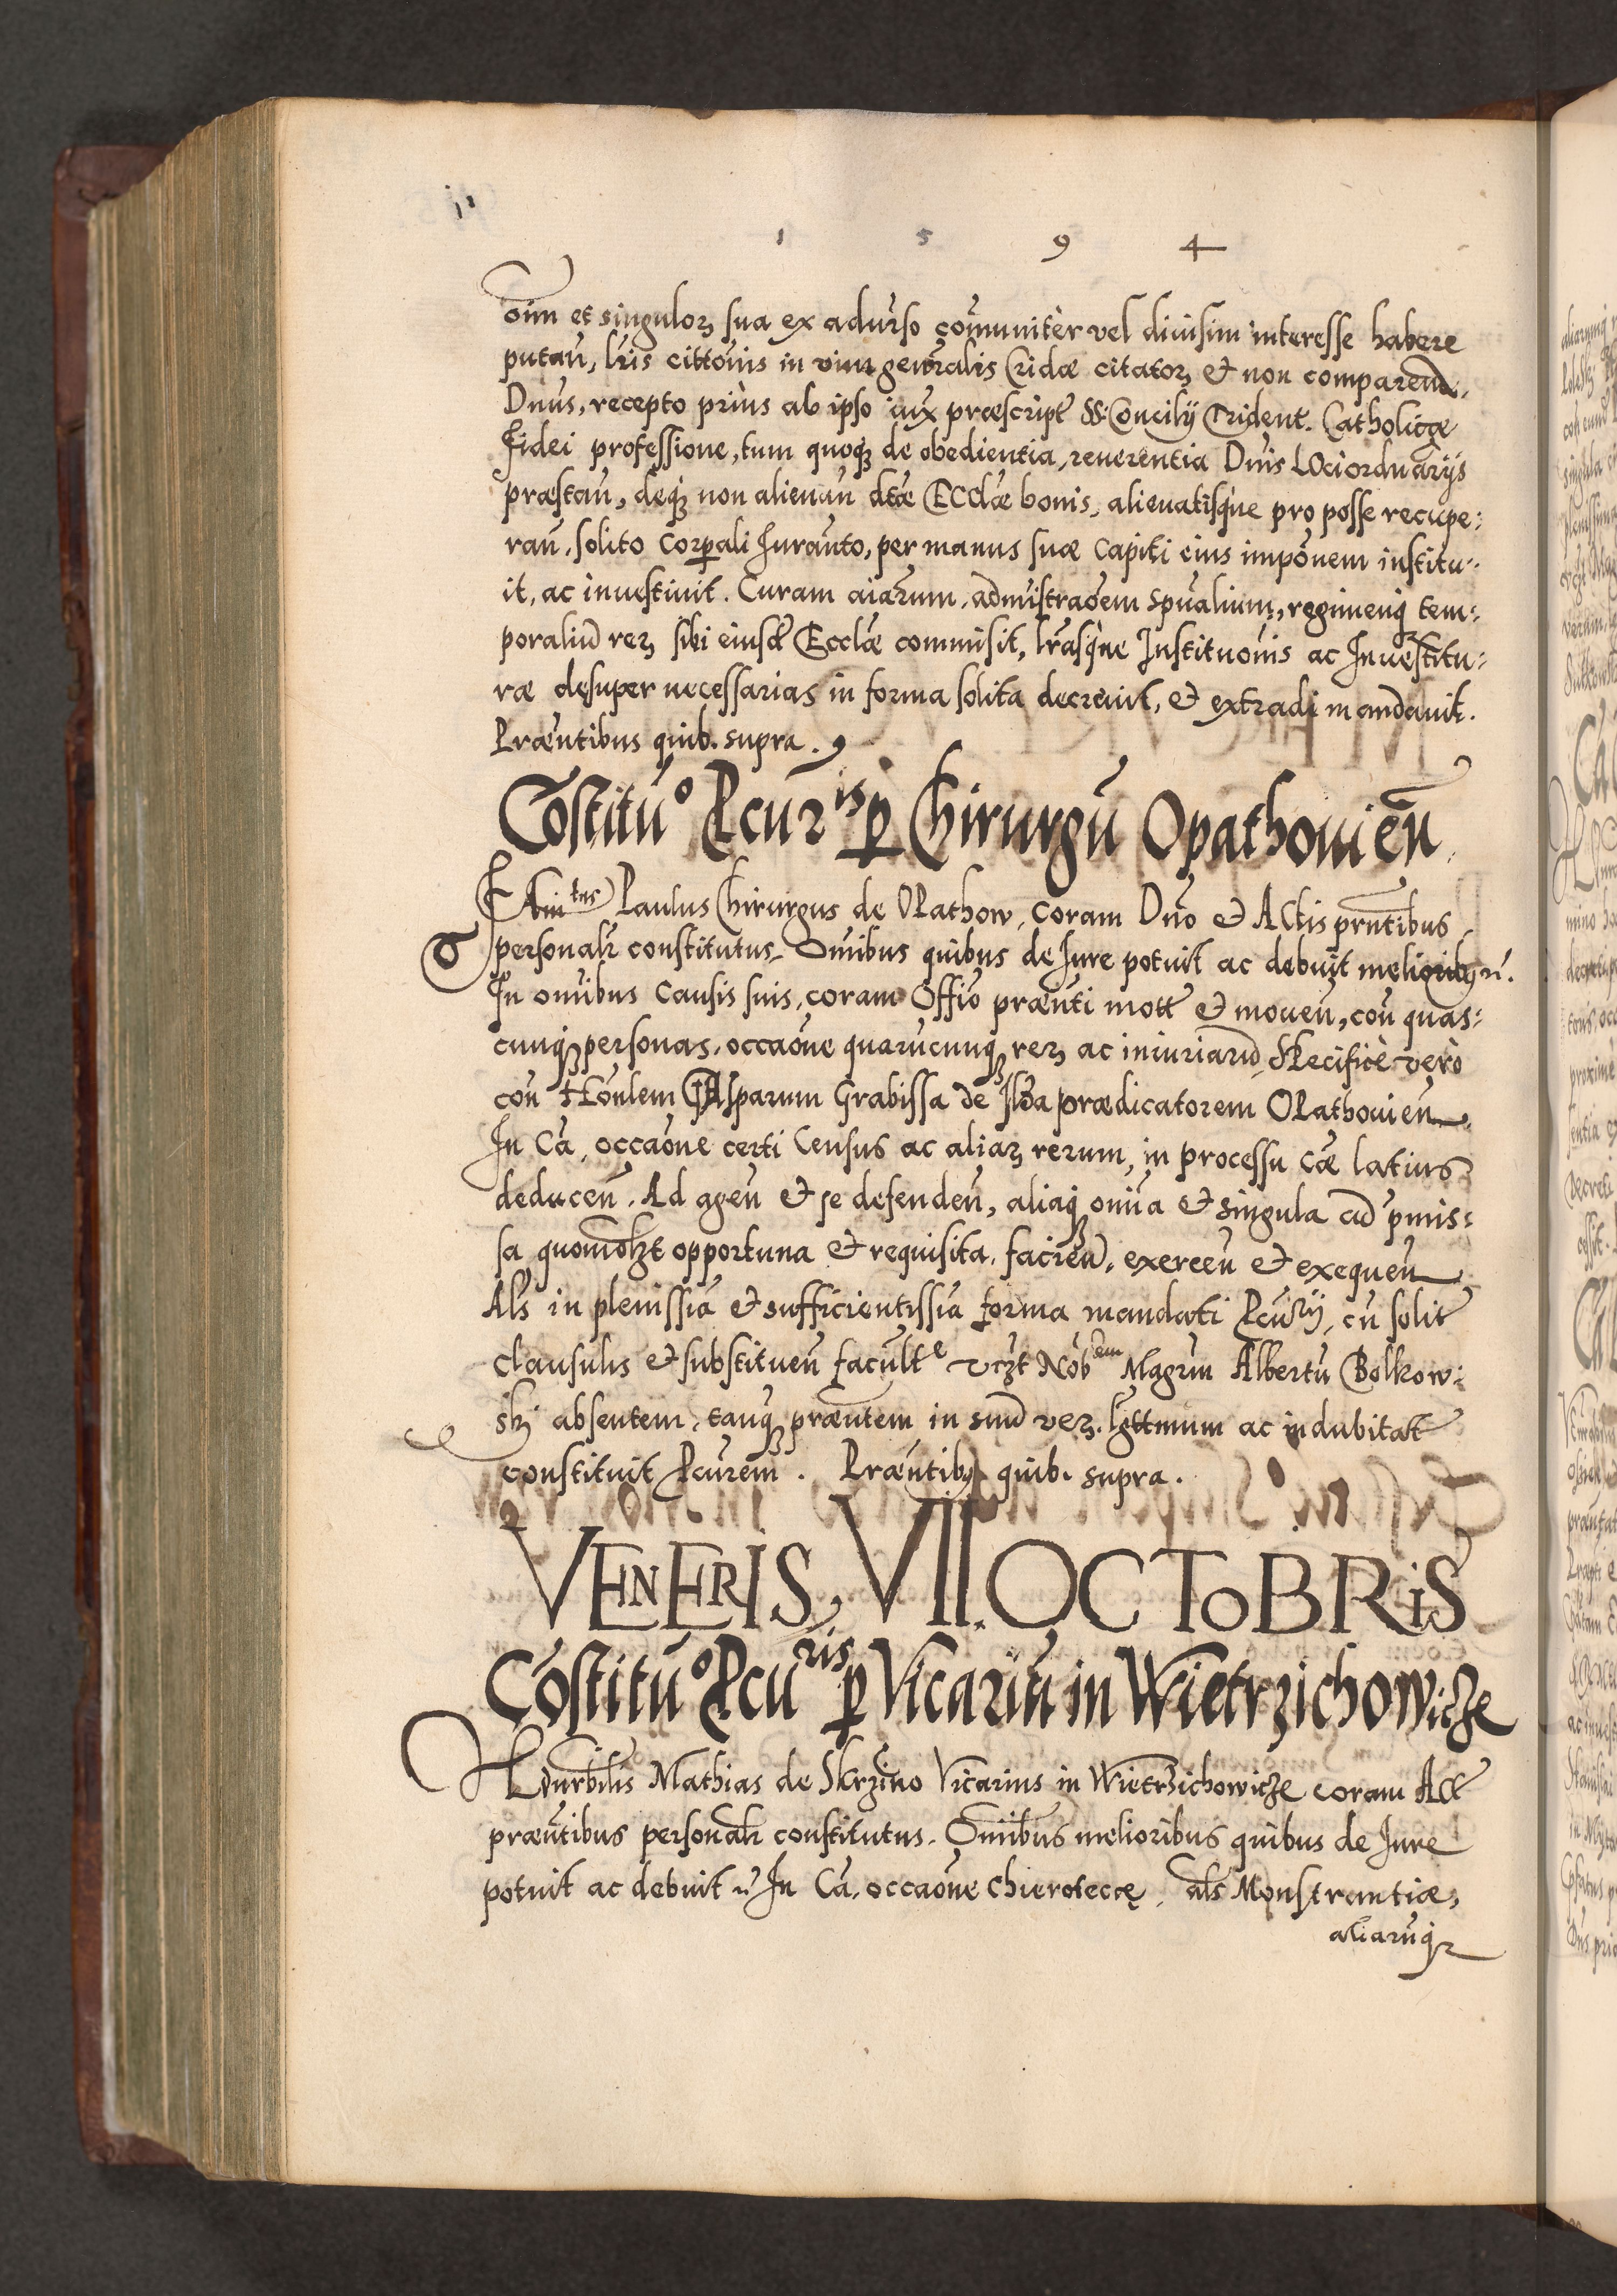 1 5 9 4
oim et singulor̨ sua ex aduerso com̄uniter vel diuisim interesse habere
putan̄, l̄ris cittōnis in vim gen̄ralis Cridæ citator̨ et non comparen̄.
Dn̄us, recepto prius ab ipso iux præscript̄ SS. Concilij Trident. Catholicæ
Fidei professione, tum quoq̨ de obedientia, reuerentia Dn̄is LOciordn̄arijs
præstan̄, deq̨ non alienan̄ dc̄tæ ECClæ bonis, alienatisque pro posse recupe:
ran̄, solito Corp̄ali Iuram̄to, per manus suæ capiti eius impōnem institu:
it, ac inuestiuit. Curam aiārum, adm̄istraōem sp̄ualium, regimenq̨ tem:
poraliū rer̨ sibi eiusd̄ Eccl̄æ commisit, l̄rasque Institutiōnis ac Inuestitu:
ræ desuper necessarias in forma solita decreuit, et extradi mandauit.
Præn̄tibus quib. supra.
Cōstitu͠o Pcur̄ is p̱ Chirurgū Opathouien̄.
FAm tus Paulus Chirurgus de OPathow, coram Dn̄o et ACtis prn̄tibus
personal̄r constitutus. Omībus quibus de Iure potuit ac debuit meliorib9 n̄.
In omībus Causis suis, coram Offīo præn̄ti mott̄ et mouen̄, con̄ quas:
cunq̨ personas, occaōne quarūcunq̨ rer̨ ac iniuriarū, SPecifice vero
con̄ Hōnlem GAsparum Grabissa de Ilza prædicatorem OPathouien̄
In Cā, occaōne certi Census ac aliar̨ rerum, in processu cæ latius
deducen̄. Ad agen̄ et se defenden̄, aliaq̨ omīa et singula ad p̄mis:
sa quomōlzt opportuna et requisita, facien̄, exercen̄ et exequen̄
Al̄s in plenissīa et sufficientissīa forma mandati Pcurij, cū solit̄
clausulis et substituen̄ facult̄e vczt Nob lem Magrm Albertū Bolkow:
skj absentem, tanq̨ præn̄tem in suū ver̨. lgttmum ac indubitatt̄
constituit Pcurem̄. Præn̄tib9 quib. supra.
VENERIS, VII. OCToBRiS
Cōstitu͠o Pcu ris p̱ Vicariū in Wietrzichowicze
HOnrbilis Mathias de Skrzino Vicarius in Wietrzichowicze coram Act̄
præn̄tibus personal̄r constitutus. Omībus melioribus quibus de Iure
potuit ac debuit n̄ In Cā, occaōne Chierotecę, al̄s Monstrantiæ,
aliarūq̨